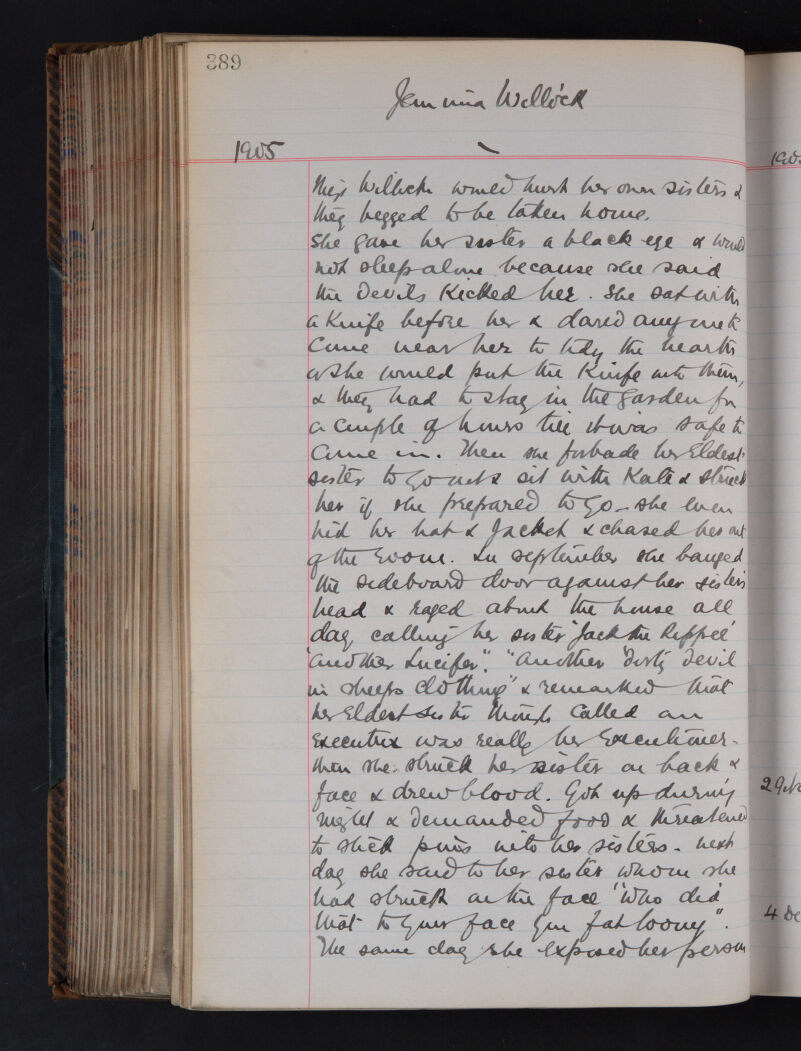 389
Jemima Willock
1905
Miss Willock would hurt her own sisters &
they begged to be taken home.
She gave her sister a black eye & would
not sleep alone because she said
the Devils Kicked her. She sat with
a Knife before her & dared anyone to
come near her to tidy the hearth
or she would put the Knife into them,
& they had to stay in the garden for
a couple of hours till it was safe to
come in. Then she forbade her Eldest
sister to go out & sit with Kate & struck
her if she prepared to go - she even
hid her hat & Jacket & chased her out
of the room. In september she banged
the sideboard door against her sisters
head & raged about the house all
day calling her sister "Jack the Ripper"
"another Lucifer". "another dirty devil
in sheeps clothing" & remarked that
her Eldest sister though called an
Executrix was really her Executioner -
then she struck her sister on back &
face & drew blood. Got up during
night & Demanded food & threatened
to stick pins into her sisters - next
day she said to her sister whom she
had struck on the face "Who did
that to your face you fat loony".
The same day she exposed her person
190
29
4 De